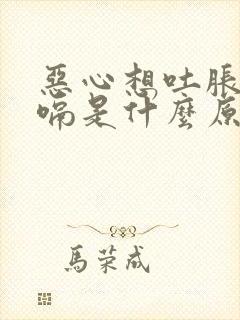 惡心想吐脹
嗝是什麼原
馬荣成